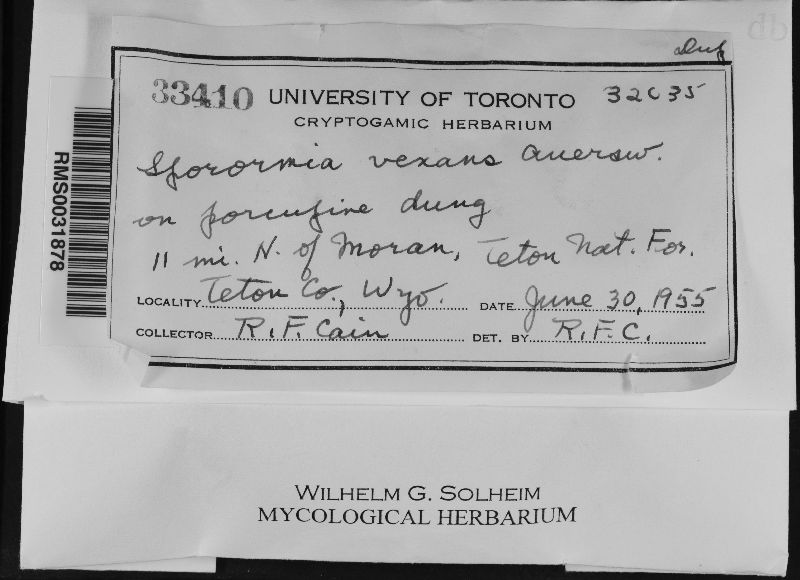 Dup
33410 UNIVERSITY OF TORONTO 32C35
CRYPTOGAMIC HERBARIUM
Sporormia vexans Auersw.
on porcupine dung
11 mi. N. of Moran, Teton Nat. For.
LOCALITY Teton Co., Wyo. DATE June 30, 1955
COLLECTOR R. F. Cain DET. BY R. F. C.
RMS0031878
WILHELM G. SOLHEIM
MYCOLOGICAL HERBARIUM